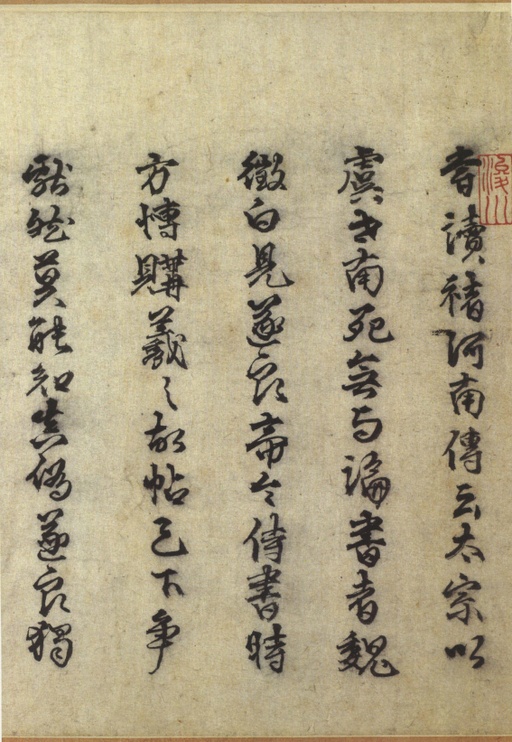 昔讀褚河南傳云太宗以
虞世南死無与論書者魏
徵白見遂良帝令侍書時
方博購羲之故帖天下爭
獻然莫能知真偽遂良獨